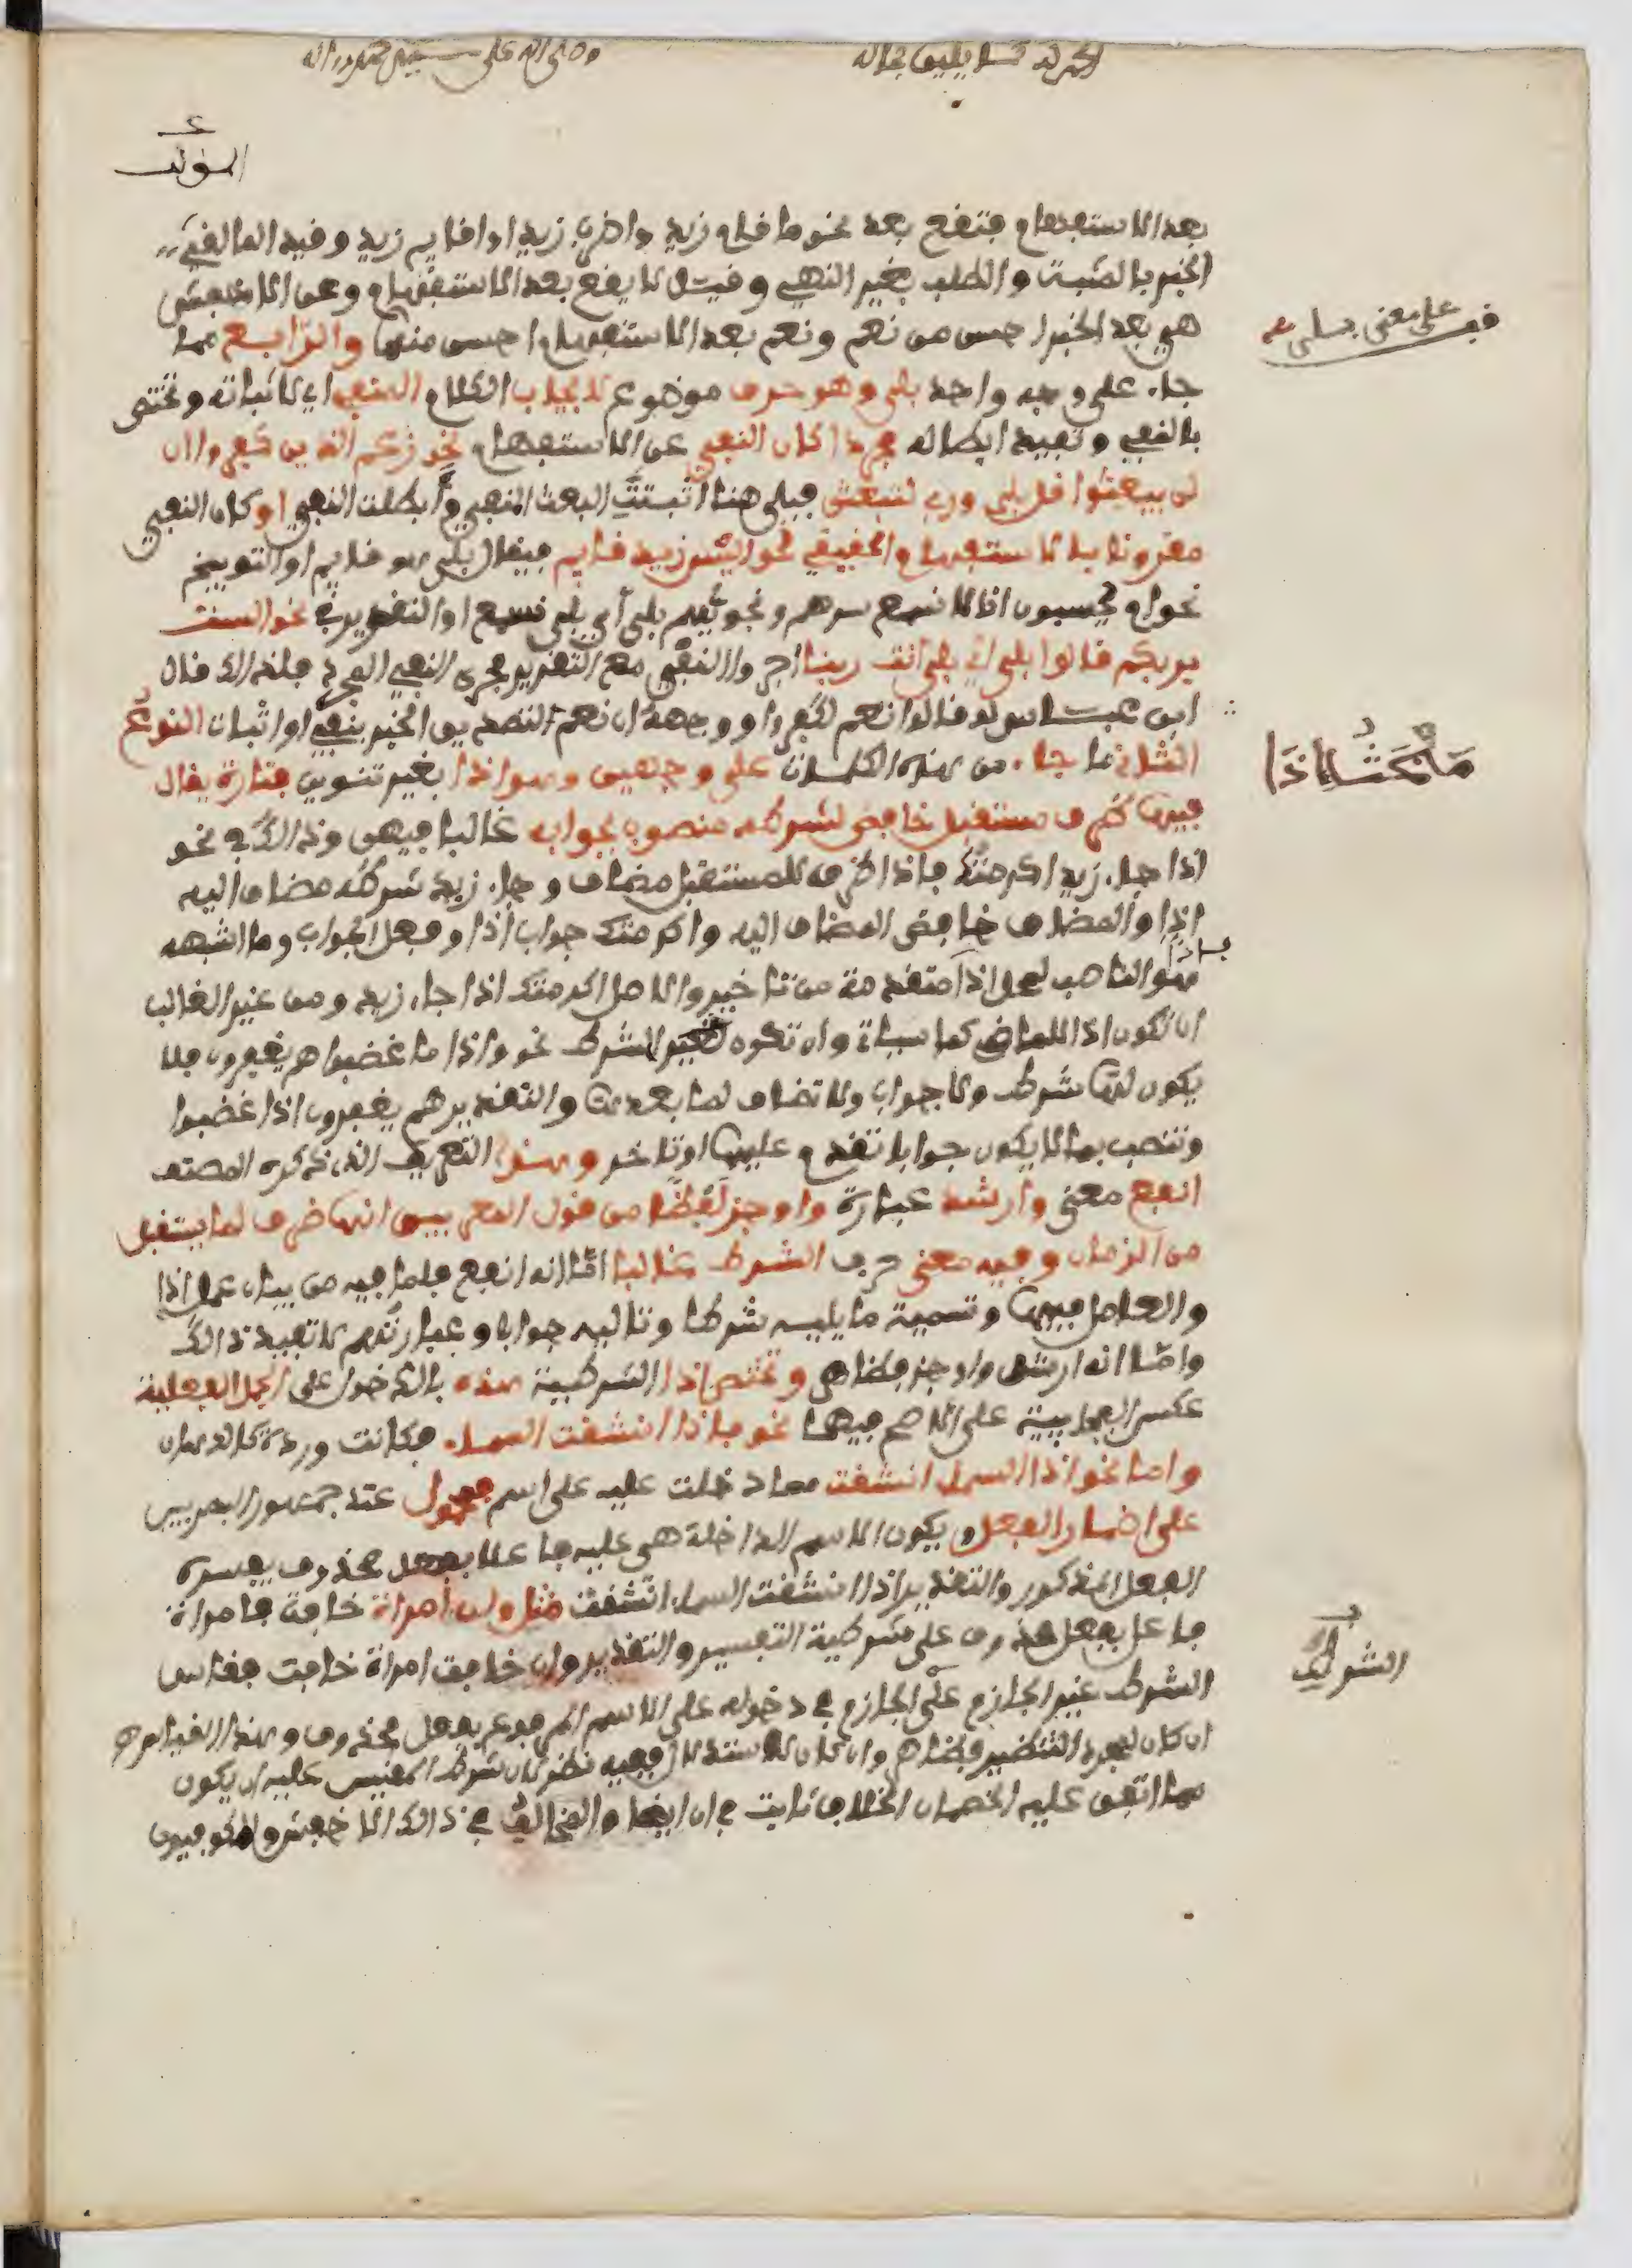 الحمد لله كما يليق بجلاله
وصلى الله على سيدنا محمد وآله
بعد الاستفهام فتقع بعد نحو ما قام زيد واضرب زيدا واقايم زيد وقيد المالقي
الخبر بالمثبت والطلب بغير النهي وقيل لا يقع بعد الاستفهام وعن الاخفش
هي بعد الخبر احسن من نعم ونعم بعد الاستفهام احسن منها والرابع مما
على معنى بلى
جاء على وجه واحد بلى وهو حرف موضوع لايجاب الكلام المنفي اي لاثباته وتختص
بالنفي وتفيد ابطاله مجردا كان النفي عن الاستفهام نحو زعم الذين كفروا ان
لن يبعثوا قل بلى وربي لتبعثن فبلى هنا اثبتت البعث المنفي وابطلت النفي او كان النفي
مقرونا بالاستفهام الحقيقي نحو اليس زيد قايم فيقال بلى هو قايم او التوبيخ
نحو ام يحسبون انا لا نسمع سرهم ونجويهم بلى أي بلى نسمع او التقرير نحو الست
بربكم قالوا بلى اي بلى انت ربنا اجروا النفي مع التقرير مجرى النفي المجرد فلذالك قال
ابن عباس لو قالوا نعم لكفروا ووجهه ان نعم لتصديق الخبر بنفي او اثبات النوع
الثاني ما جاء من هذه الكلمات على وجهين وهو اذا بغير تنوين فتارة يقال
مَبْحَثُ اِذَا
فيها ظرف مستقبل خافض لشرطه منصوب بجوابه غالبا فيهن وذالك في نحو
اذا جاء زيد اكرمتك فاذا ظرف للمستقبل مضاف وجاء زيد شرطه مضاف اليه
اذا والمضاف خافض المضاف اليه واكرمتك جواب اذا وفعل الجواب وما اشبهه
هو الناصب لمحل اذا متقدمة من تاخير والاصل اكرمتك اذا جاء زيد ومن غير الغالب
ان تكون اذا للماضي كما سياتي وان تكون لغير الشرط نحو واذا ما غضبوا هم يغفرون فلا
يكون لها شرط ولا جواب ولا تضاف لما بعدها والتقدير هم يغفرون اذا غضبوا
وتنصب بما لا يكون جوابا تقدم عليها او تاخر وهذا التعريف الذي ذكره المصنف
انفع معنى وارشد عبارة واوجز لفظا من قول المعربين انها ظرف لما يستقبل
من الزمان وفيه معنى حرف الشرط غالبا اما انه انفع فلما فيه من بيان عمل اذا
والعامل فيها وتسمية ما يليه شرطا وتاليه جوابا وعبارتهم لا تفيد ذالك
واما انه ارشد واوجز فظاهر وتختص اذا الشرطية هذه بالدخول على الجمل الفعلية
عكس الفجايية على الاصح فيهما نحو فاذا انشقت السماء فكانت وردة كالدهان
واما نحو اذا السماء انشقت مما دخلت عليه على اسم فمحمول عند جمهور البصريين
على اضمار الفعل ويكون الاسم الداخلة هي عليه فاعلا بفعل محذوف يفسره
الفعل المذكور والتقدير اذا انشقت السماء انشقت مثل وان امراة خافت فامراة
فاعل بفعل محذوف على شرطية التفسير والتقدير وان خافت امراة خافت فقاس
الشرط غير الجازم على الجازم في دخوله على الاسم المرفوع بفعل محذوف وهذا القياس
ان كان لمجرد التنظير فظاهر وان كان للاستدلال ففيه نظر لان شرط المقيس عليه ان يكون
مما اتفق عليه الخصمان والخلاف ثابت في ان ايضا والمخالف في ذالك الاخفش والكوفيون